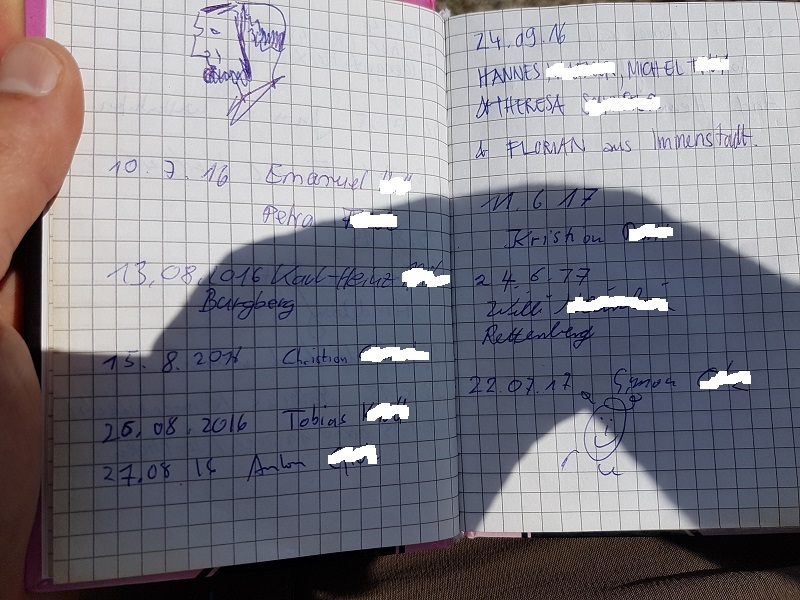 10. 7. 16 Emanuel
Petra
13.08.2016 Karl-Heinz
Burgberg
15. 8. 2016 Christian
26.08.2016 Tobias
27.08 16 Anton
24.09.16
HANNES , MICHEL
& THERESA
& FLORIAN aus Immenstadt.
11. 6 17
24.6.17
Willi
Rettenberg
22.07.17 Simon